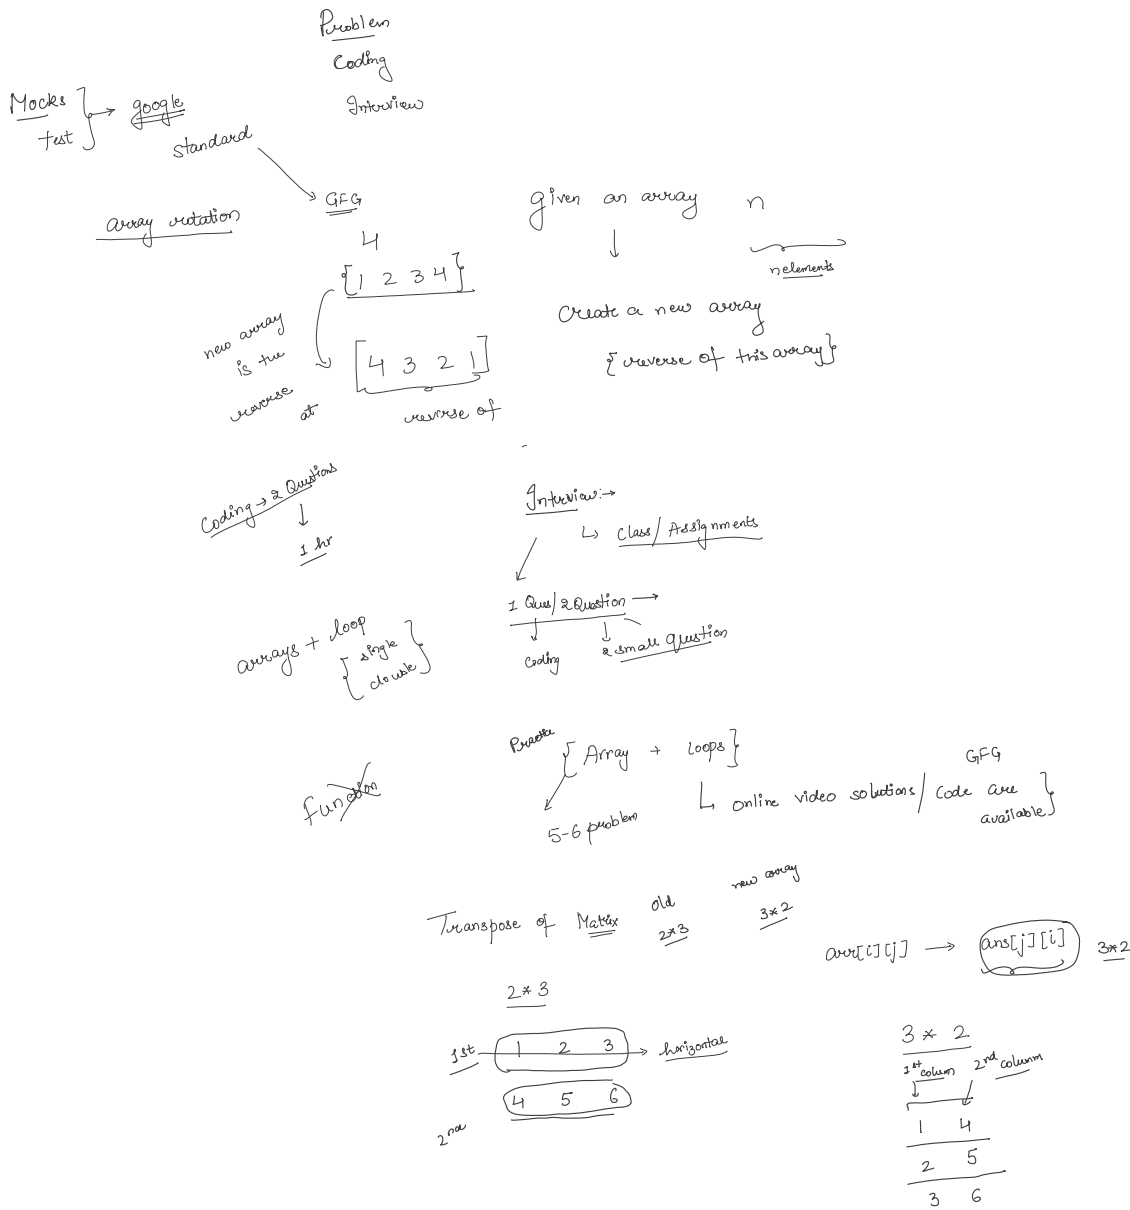 Problem
Coding
Interview
Mocks
test
google
standard
GFG
array rotation
4
{1 2 3 4}
new array
is the
reverse
at
[4 3 2 1]
reverse of
given an array n
n elements
Create a new array
{reverse of this array}
Coding → 2 Questions
1 hr
Interview:→
Class/Assignments
1 Ques/2 Question →
Coding
2 small question
arrays + loop
{single
double}
Function
Practice {Array + loops}
5-6 problem
GFG
online video solutions/ Code are
available}
Transpose of Matrix
old
2*3
new array
3*2
arr[i][j] → ans[j][i] 3*2
2*3
1st 1 2 3 → horizontal
2nd 4 5 6
3 * 2
1st colum 2nd colunm
1 4
2 5
3 6